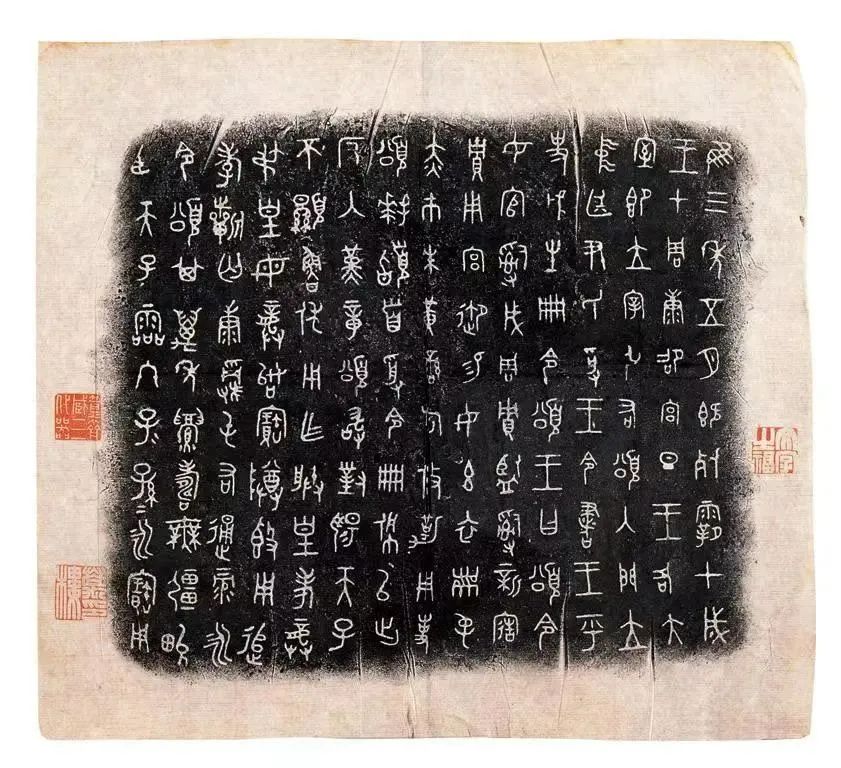 隹三年五月既死霸甲戌
王才周康卲宮旦王各大
室即立宰弘右頌入門立
中廷尹氏受王令書王乎
史虢生冊令頌王曰頌令
女官𤔲成周貯監𤔲新造
貯用宮御易女玄衣黹屯
赤市朱黃䜌旂攸勒用事
頌拜𩒨首受令冊佩以出
反入堇章頌敢對揚天子
不顯魯休用乍朕皇考龏
弔皇母龏始寶尊簋用追
孝祈匄康𩁹屯右通彔永
令頌其萬年眉壽無疆畯
臣天子霝冬子子孫孫永寶用